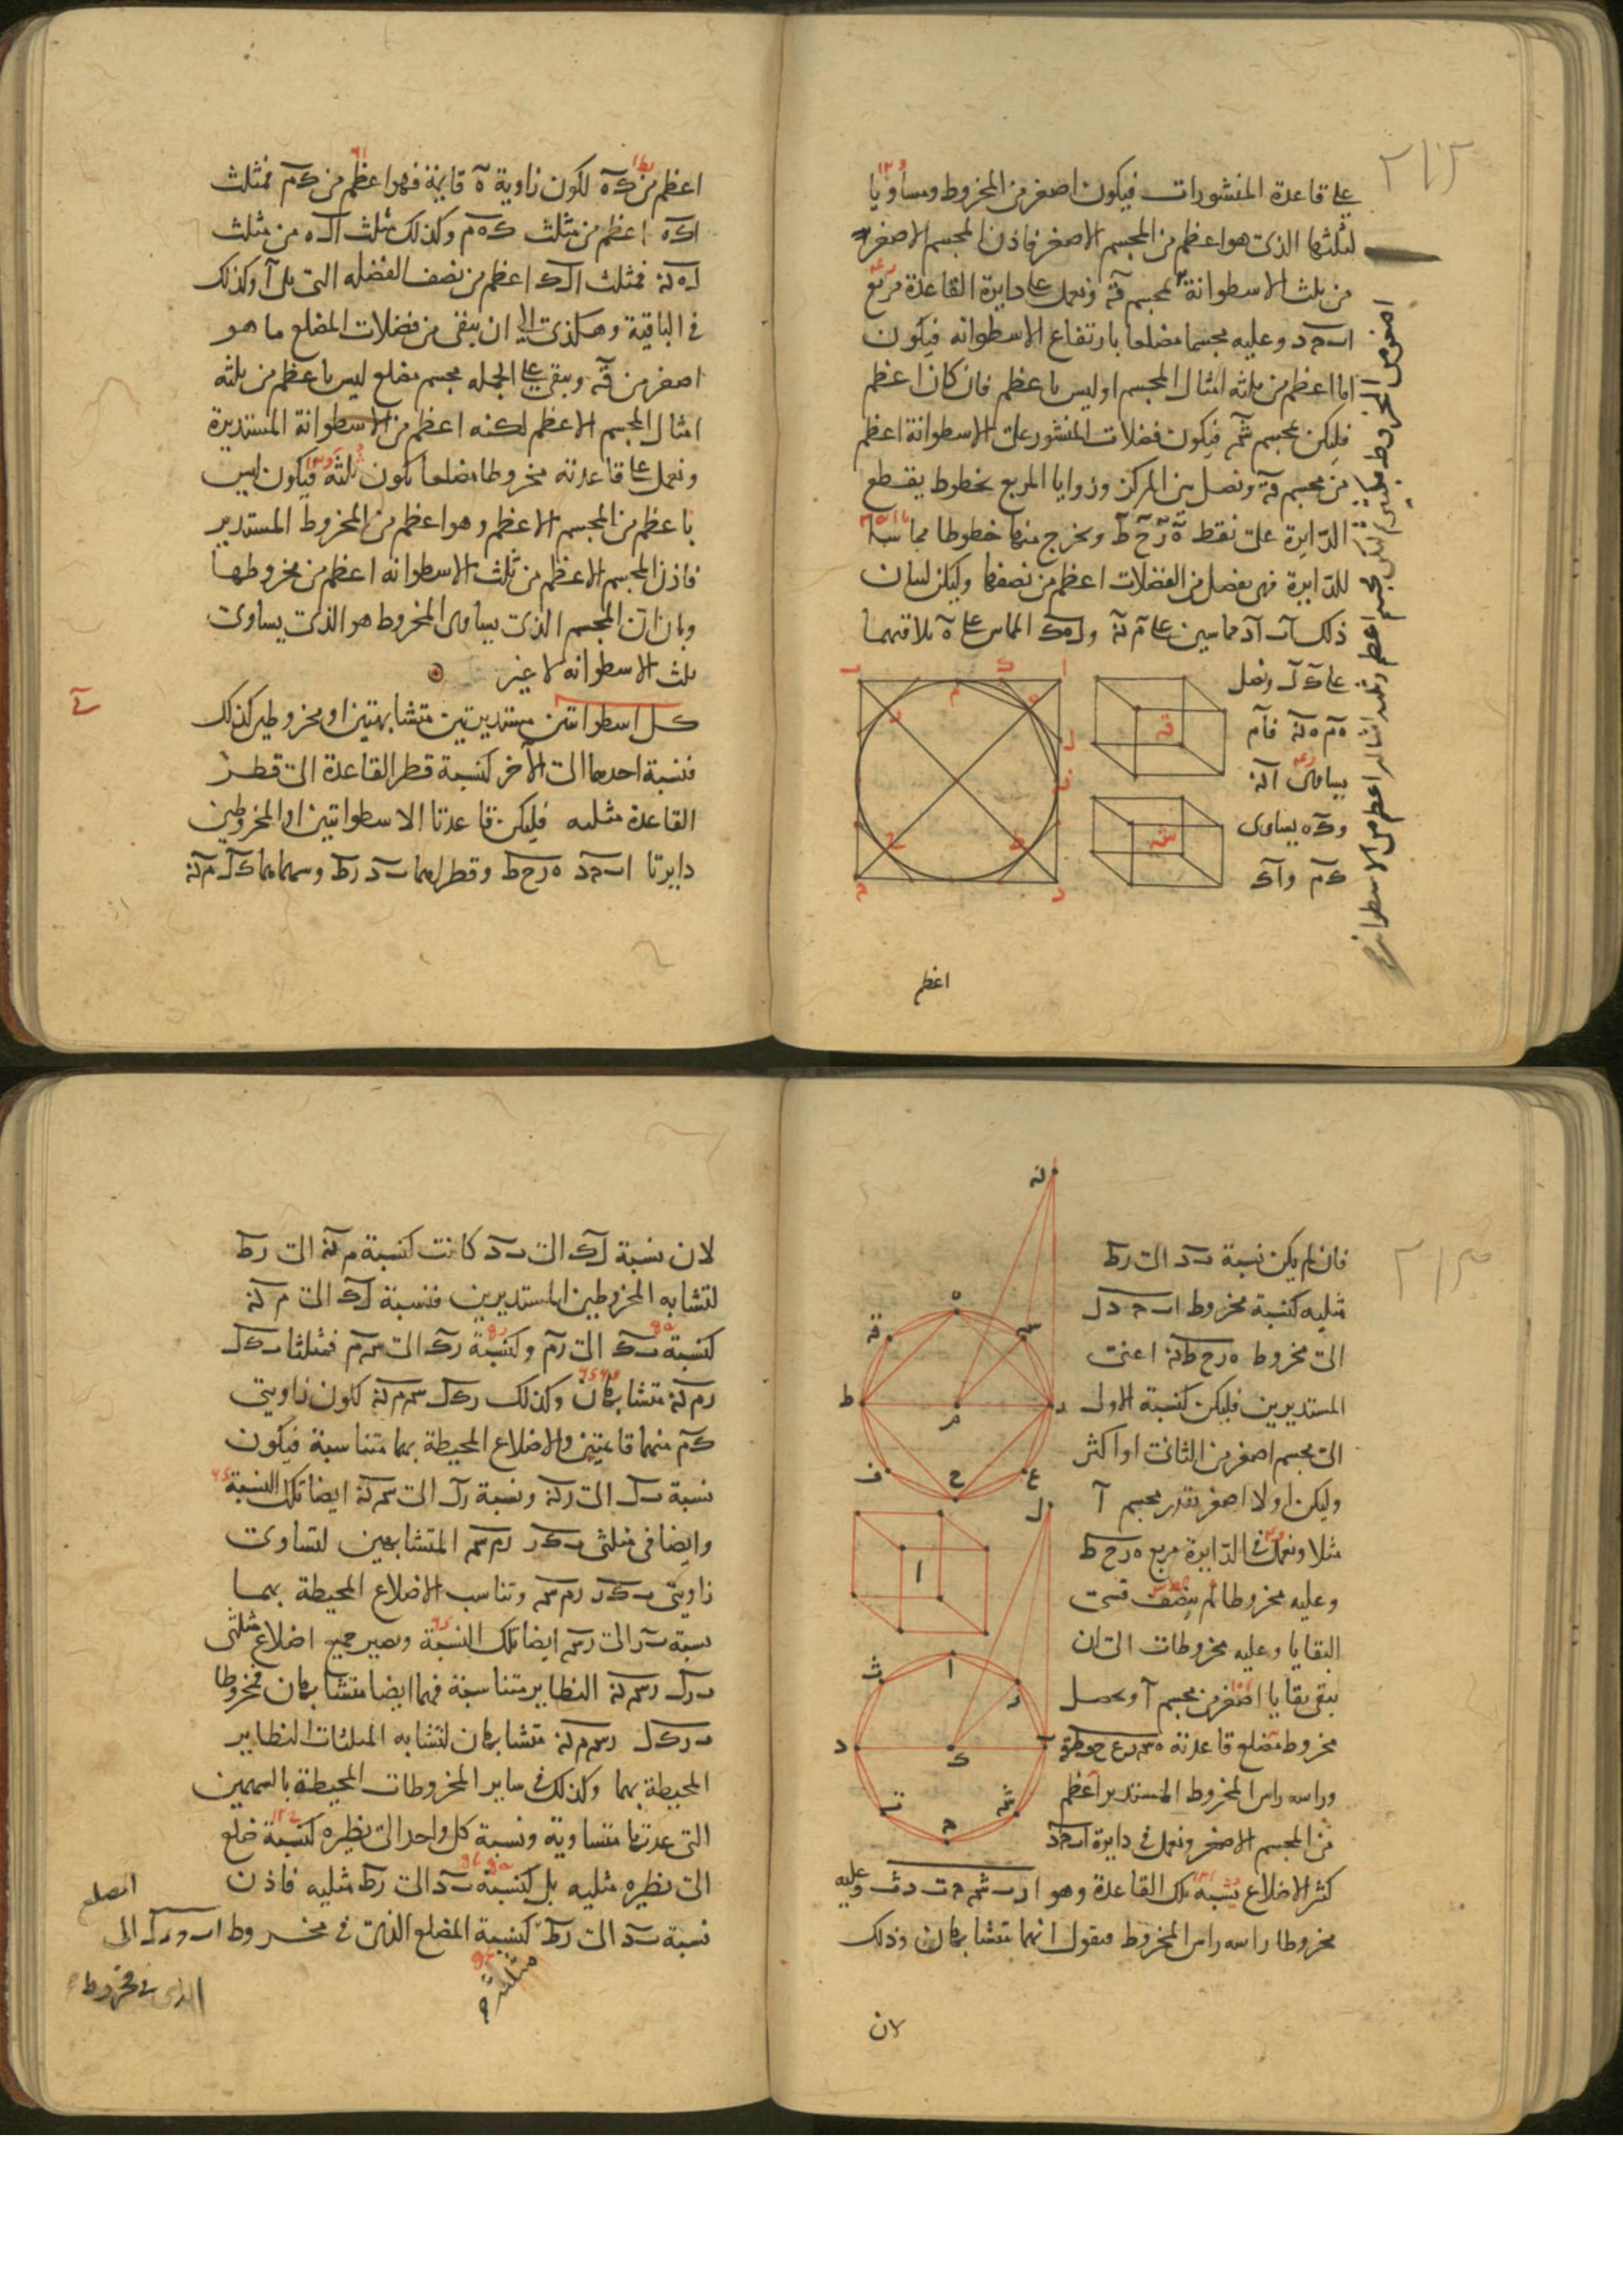 على قاعدة المنشورات فيكون اصغر من المخروط ومساويا
لثلثها الذى هو اعظم من المجسم الاصغر فاذن المجسم الاصغر
من ثلث الاسطوانة بمجسم قه ونعمل على دايرة القاعدة مربع
اب حد وعليه مجسما مضلعا بارتفاع الاسطوانه فيكون
اما اعظم من ثلثه امثال المجسم او ليس باعظم فان كان اعظم
فليكن بمجسم شه فيكون فضلات المنشور على الاسطوانة اعظم
من مجسم قه ونصل بين المركز وزوايا المربع بخطوط يقطع
الدايرة على نقط ه ر ح ط ونخرج منها خطوطا مماسة
للدايرة فهى يفصل من الفضلات اعظم من نصفها وليكن لبيان
ذلك اب اد مماسين على م نه و ل ه ك المماس على ه يلاقيهما
على ك ل ونصل
ه م ه نه فام
يساوى انه
و ك ه يساوى
ك م و اك
اعظم
اعظم من ك ه لكون زاوية ه قايمة فهو اعظم من ك م فمثلث
اك ه اعظم من مثلث ك ه م وكذلك مثلث ال ه من مثلث
ل ه نه فمثلث ال ك اعظم من نصف الفضله التى يلى آ وكذلك
فى الباقية وهكذى الى ان يبقى من فضلات المضلع ما هو
اصغر من قه ويبقى على الجمله مجسم مضلع ليس باعظم من ثلثه
امثال المجسم الاعظم لكنه اعظم من الاسطوانة المستديرة
ونعمل على قاعدته مخروطا مضلعا يكون ثلثه فيكون ليس
باعظم من المجسم الاعظم وهو اعظم من المخروط المستدير
فاذن المجسم الاعظم من ثلث الاسطوانه اعظم من مخروطها
وبان ان المجسم الذى يساوى المخروط هو الذى يساوى
ثلث الاسطوانه لا غير
كل اسطوانتين مستديرتين متشابهتين او مخروطين كذلك
فنسبة احدهما الى الآخر كنسبة قطر القاعدة الى قطر
القاعدة مثلثه فليكن قاعدتا الاسطوانتين او المخروطين
دايرتا اب حد ه ر ح ط وقطراهما ب د ر ط وسهماهما ك ل م نه
فان لم يكن نسبة ب د الى ر ط
مثلثه كنسبة مخروط اب ح د ل
الى مخروط ه ر ح ط نه اعنى
المستديرين فليكن كنسبة الاول
الى مجسم اصغر من الثانى او اكثر
وليكن اولا اصغر بقدر مجسم آ
مثلا ونعمل فى الدايرة مربع ه ر ح ط
وعليه مخروطا ثم ينصف قسى
البقايا وعليه مخروطات الى ان
يبقى بقايا اصغر من مجسم آ ويحصل
مخروط مضلع قاعدته ه س ر ع ح ف ط ق
وراسه راس المخروط المستدير اعظم
من المجسم الاصغر ونعمل فى دايرة اب حد
كثير الاضلاع يشبه تلك القاعدة وهو ا ر ب ش ح ت د ث وعليه
مخروطا راسه راس المخروط فنقول انهما متشابهان وذلك
لان
لان نسبة ل ك الى ب د كانت كنسبة م نه الى ر ط
لتشابه المخروطين المستديرين فنسبة ل ك الى م نه
كنسبة ب ك الى ر م وكنسبة ر ك الى س م فمثلثا ب ك ل
ر م نه متشابهان وكذلك ر ك ل س م نه لكون زاويتى
ك م منهما قايمتين والاضلاع المحيطة بهما متناسبة فيكون
نسبة ب ل الى ر نه ونسبة ر ل الى س نه ايضا تلك النسبة
وايضا فى مثلثى ب ك ر ر م س المتشابهين لتساوى
زاويتى ب ك ر ر م س وتناسب الاضلاع المحيطة بهما
نسبة ب ر الى ر س ايضا تلك النسبة ويصير جميع اضلاع مثلثى
ب ر ل ر س نه النظاير متناسبة فهما ايضا متشابهان فمخروطا
ب ر ك ل ر س م نه متشابهان لتشابه المثلثات النظاير
المحيطة بهما وكذلك فى ساير المخروطات المحيطة بالسهمين
التى عدتها متساوية ونسبة كل واحد الى نظيره كنسبة ضلع
الى نظيره مثلثه بل كنسبة ب د الى ر ط مثلثه فاذن
نسبة ب د الى ر ط كنسبة المضلع الذى فى مخروط اب ح د ل الى
مثلثه
المضلع
الذى فى مخروط